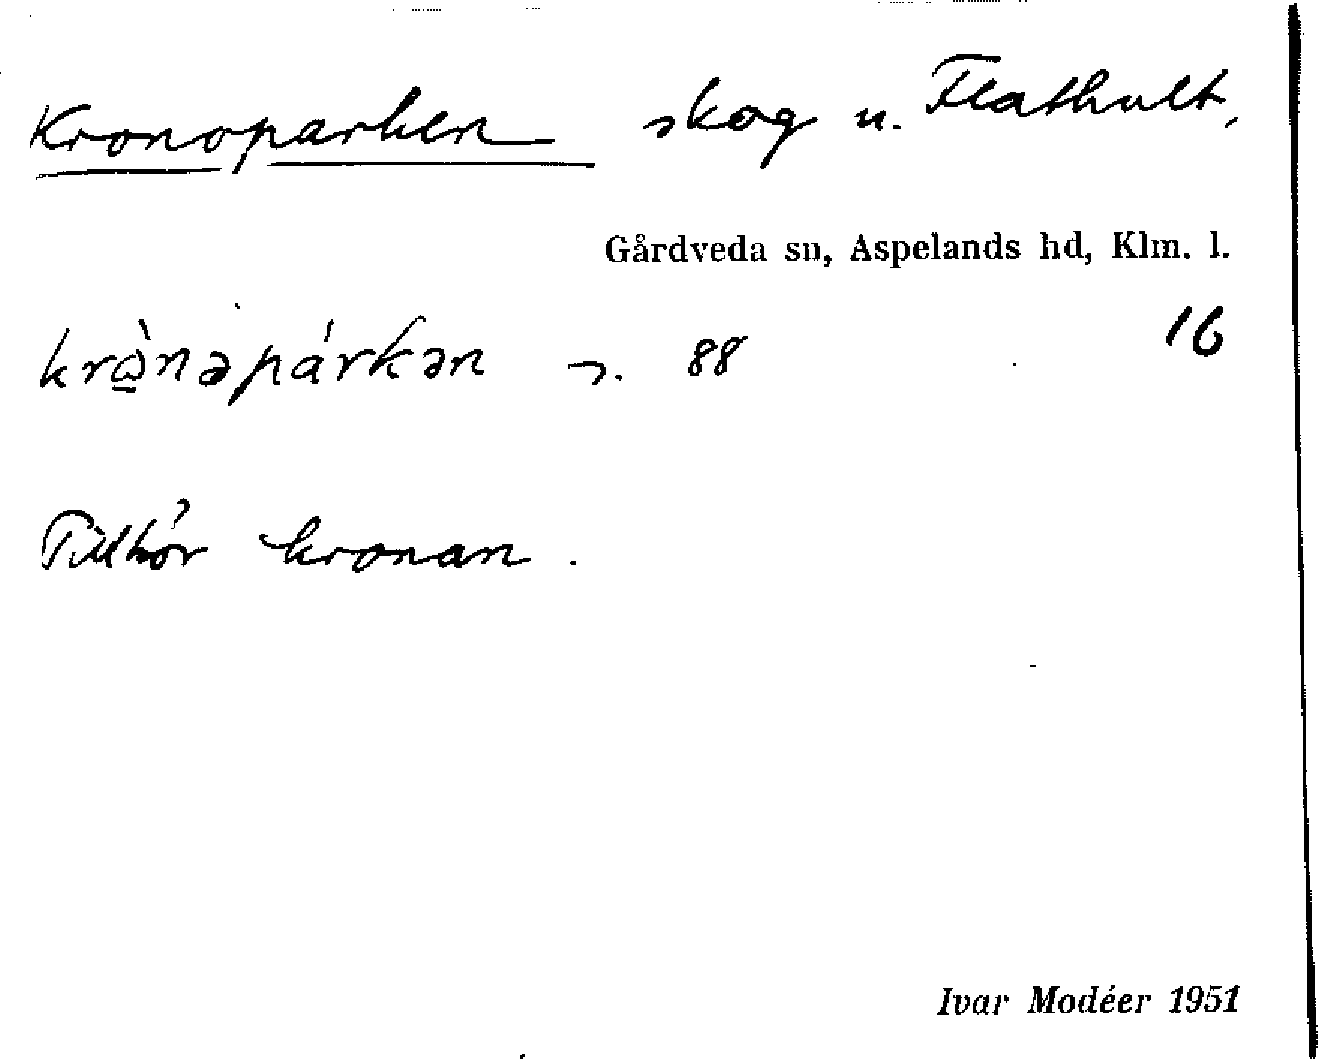 Kronoparken skog u. Flathult,
Gårdveda sn, Aspelands hd, Klm. l.
16
krò̲nəpárkən 88
Tillhör kronan.
Ivar Modéer 1951